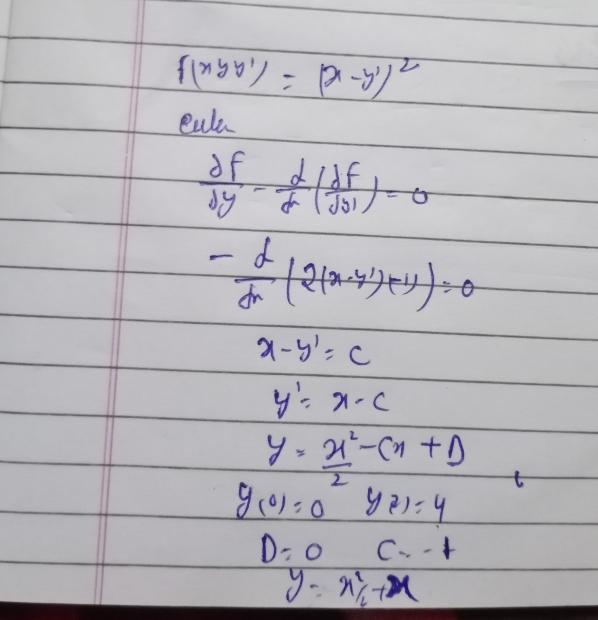 f(x y y') = (x - y')²
euler
∂f/∂y - d/dx (∂f/∂y') = 0
- d/dx (2(x-y')(-1)) = 0
x - y' = C
y' = x - C
y = x²/2 - Cx + D
y(0) = 0 y(2) = 4
D = 0 C = -1
y = x²/2 + x